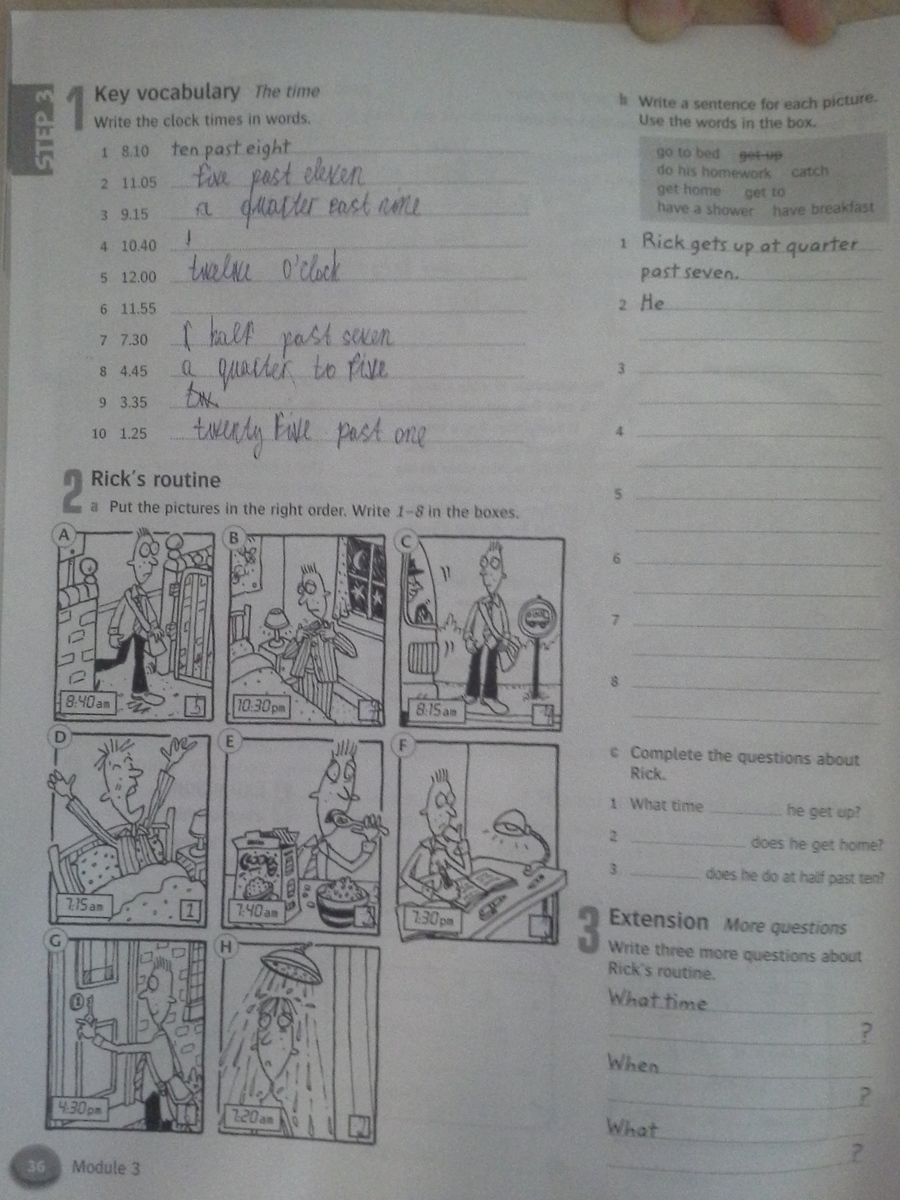 STEP 3
1 Key vocabulary The time
Write the clock times in words.
1 8.10 ten past eight
2 11.05 five past eleven
3 9.15 a quarter east nine
4 10.40
5 12.00 twelve O'clock
6 11.55
7 7.30 half past seven
8 4.45 a quarter to five
9 3.35
10 1.25 twenty five past one
2 Rick's routine
a Put the pictures in the right order. Write 1–8 in the boxes.
A
8:40am 5
B
10:30pm
C
8:15am
D
7:15am 1
E
7:40am 3
F
7:30pm
G
4:30pm
H
7:20am 2
36 Module 3
b Write a sentence for each picture.
Use the words in the box.
go to bed get up
do his homework catch
get home get to
have a shower have breakfast
1 Rick gets up at quarter
past seven.
2 He
3
4
5
6
7
8
c Complete the questions about
Rick.
1 What time ________ he get up?
2 ________ does he get home?
3 ________ does he do at half past ten?
3 Extension More questions
Write three more questions about
Rick's routine.
What time
?
When
?
What
?